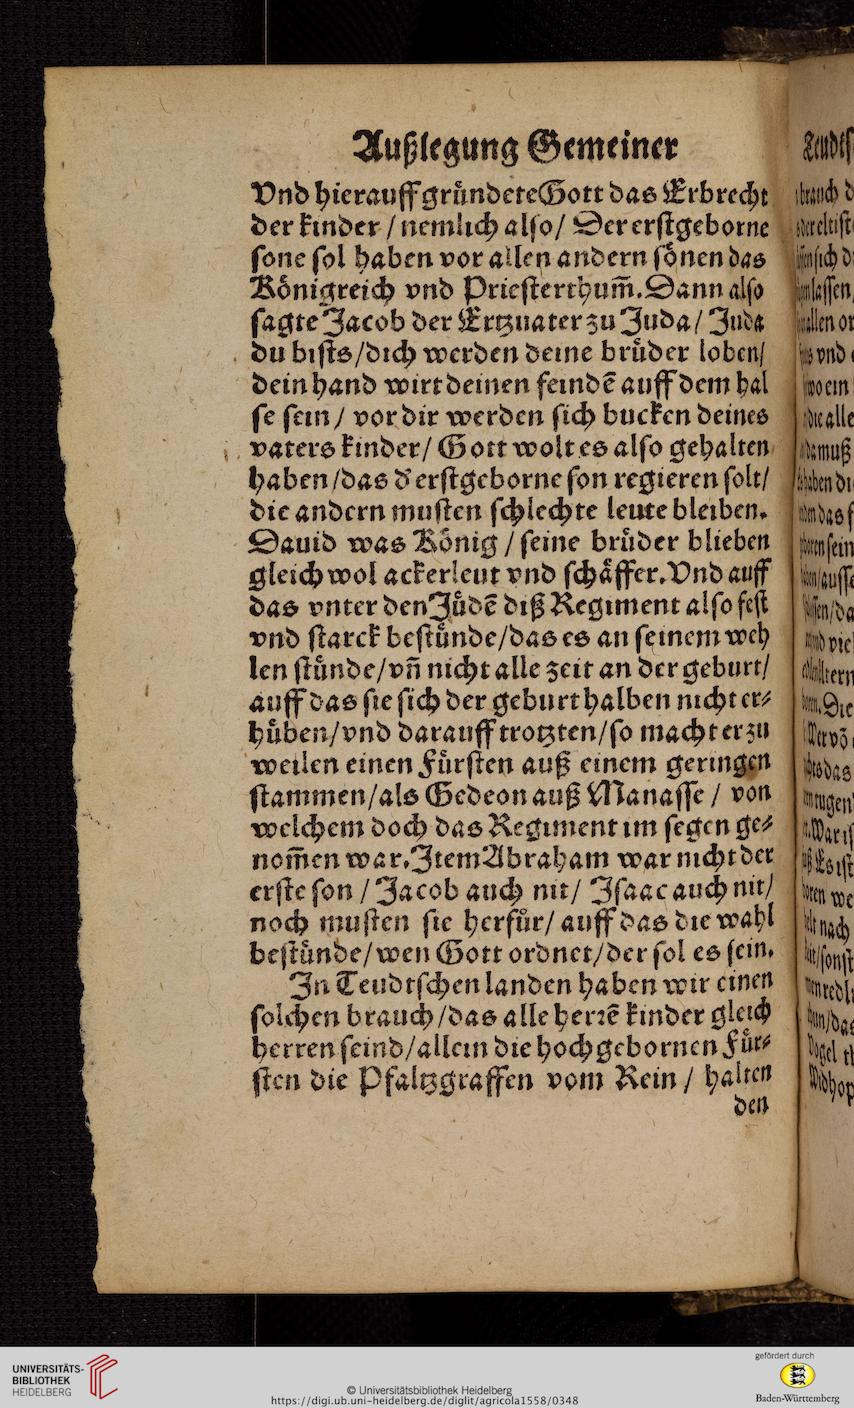 Außlegung Gemeiner
Vnd hierauff gründete Gott das Erbrecht
der kinder / nemlich also / Der erstgeborne
sone sol haben vor allen andern sönen das
Königreich vnd Priesterthum̃. Dann also
sagte Jacob der Ertzuater zu Juda / Juda
du bists / dich werden deine brüder loben /
dein hand wirt deinen feindē auff dem hal
se sein / vor dir werden sich bucken deines
vaters kinder / Gott wolt es also gehalten
haben / das d' erstgeborne son regieren solt /
die andern musten schlechte leute bleiben.
Dauid was König / seine brüder blieben
gleich wol ackerleut vnd schäffer. Vnd auff
das vnter den Jüdē diß Regiment also fest
vnd starck bestünde / das es an seinem weh
len stünde / vn̄ nicht alle zeit an der geburt /
auff das sie sich der geburt halben nicht er⸗
hüben / vnd darauff trotzten / so macht er zu
weilen einen Fürsten auß einem geringen
stammen / als Gedeon auß Manasse / von
welchem doch das Regiment im segen ge⸗
nom̃en war. Item Abraham war nicht der
erste son / Jacob auch nit / Isaac auch nit /
noch musten sie herfür / auff das die wahl
bestünde / wen Gott ordnet / der sol es sein.
In Teudtschen landen haben wir einen
solchen brauch / das alle herrē kinder gleich
herren seind / allein die hochgebornen Für⸗
sten die Pfaltzgraffen vom Rein / halten
den
UNIVERSITÄTS-
BIBLIOTHEK
HEIDELBERG
© Universitätsbibliothek Heidelberg
https://digi.ub.uni-heidelberg.de/diglit/agricola1558/0348
gefördert durch
Baden-Württemberg